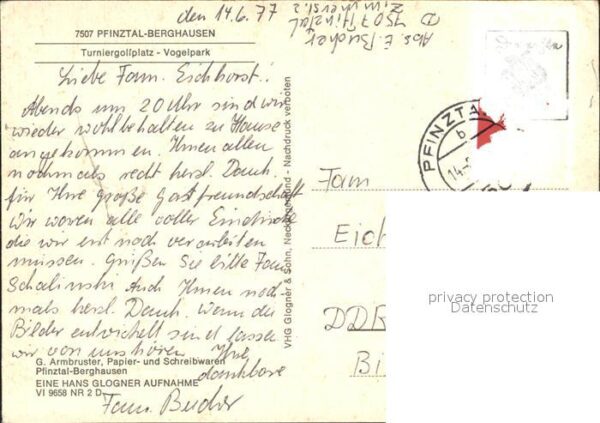 den 14.6.77
7507 PFINZTAL-BERGHAUSEN
Turniergolfplatz - Vogelpark
Liebe Fam. Eichhorst!
Abends um 20 Uhr sind wir
wieder wohlbehalten zu Hause
angekommen. Ihnen allen
nochmals recht herzl. Dank
für Ihre große Gastfreundschaft
wir waren alle voller Eindrücke
die wir erst noch verarbeiten
müssen. Grüßen Sie bitte Fam
Schalinski Auch Ihnen noch-
mals herzl. Dank. Wenn die
Bilder entwickelt sind lassen
wir von uns hören Ihre
dankbare
Fam. Bucher
G. Armbruster, Papier- und Schreibwaren
Pfinztal-Berghausen
EINE HANS GLOGNER AUFNAHME
VI 9658 NR 2 D
VHG Glogner & Sohn, Neckargemünd - Nachdruck verboten
Abs. E. Bucher
D 7507 Pfinztal
PFINZTA
b
14.-
Fam
Eich
DDR
Bi
privacy protection
Datenschutz